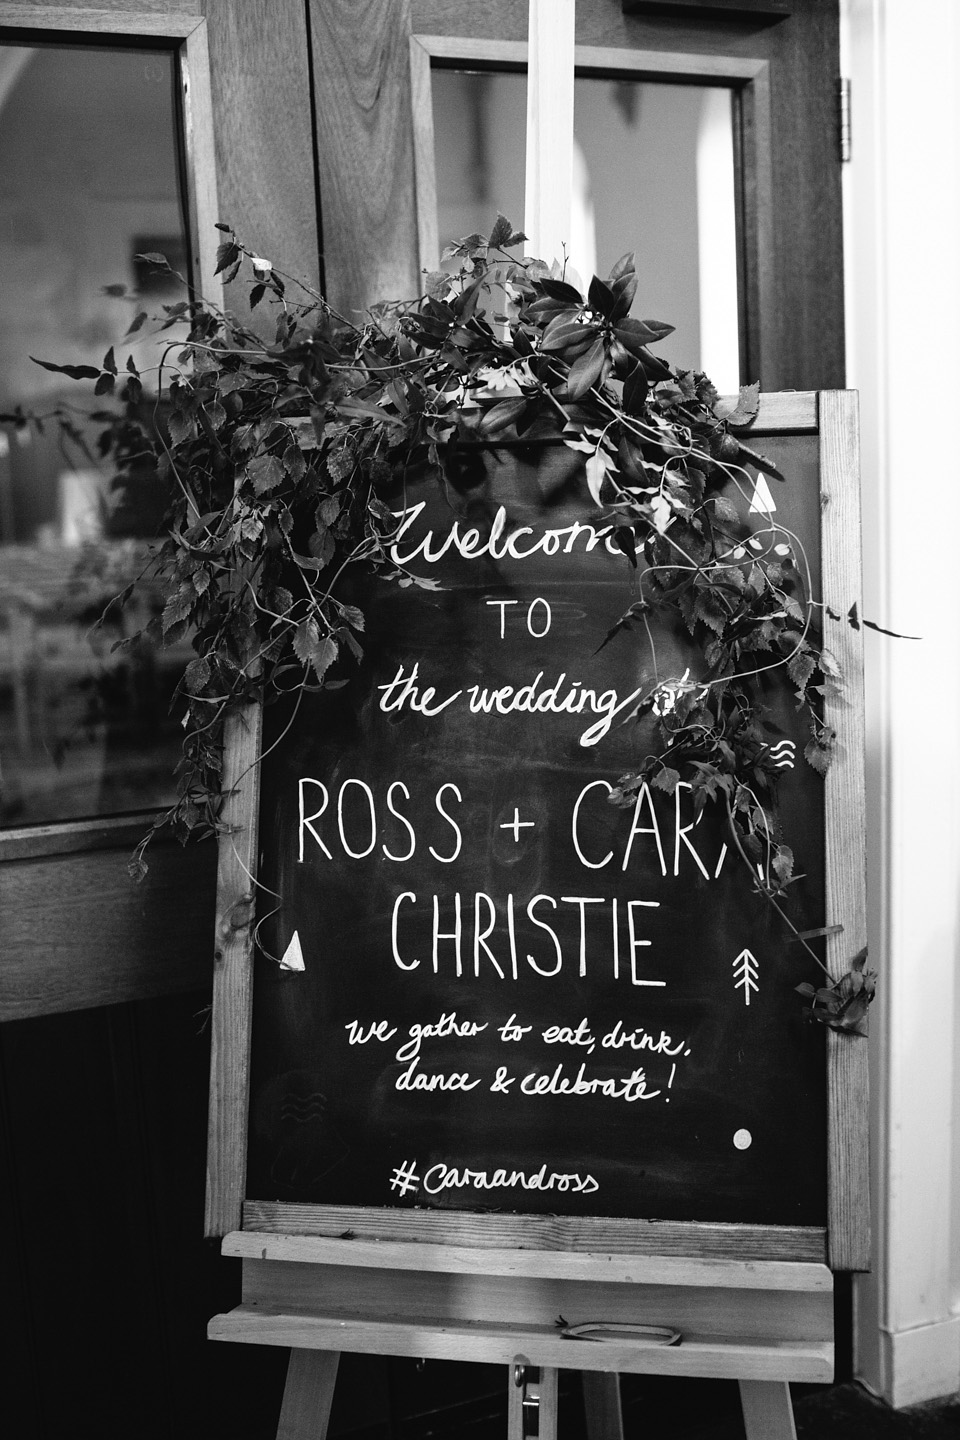 Welcome
TO
the wedding of
ROSS + CARA
CHRISTIE
we gather to eat, drink,
dance & celebrate!
#caraandross